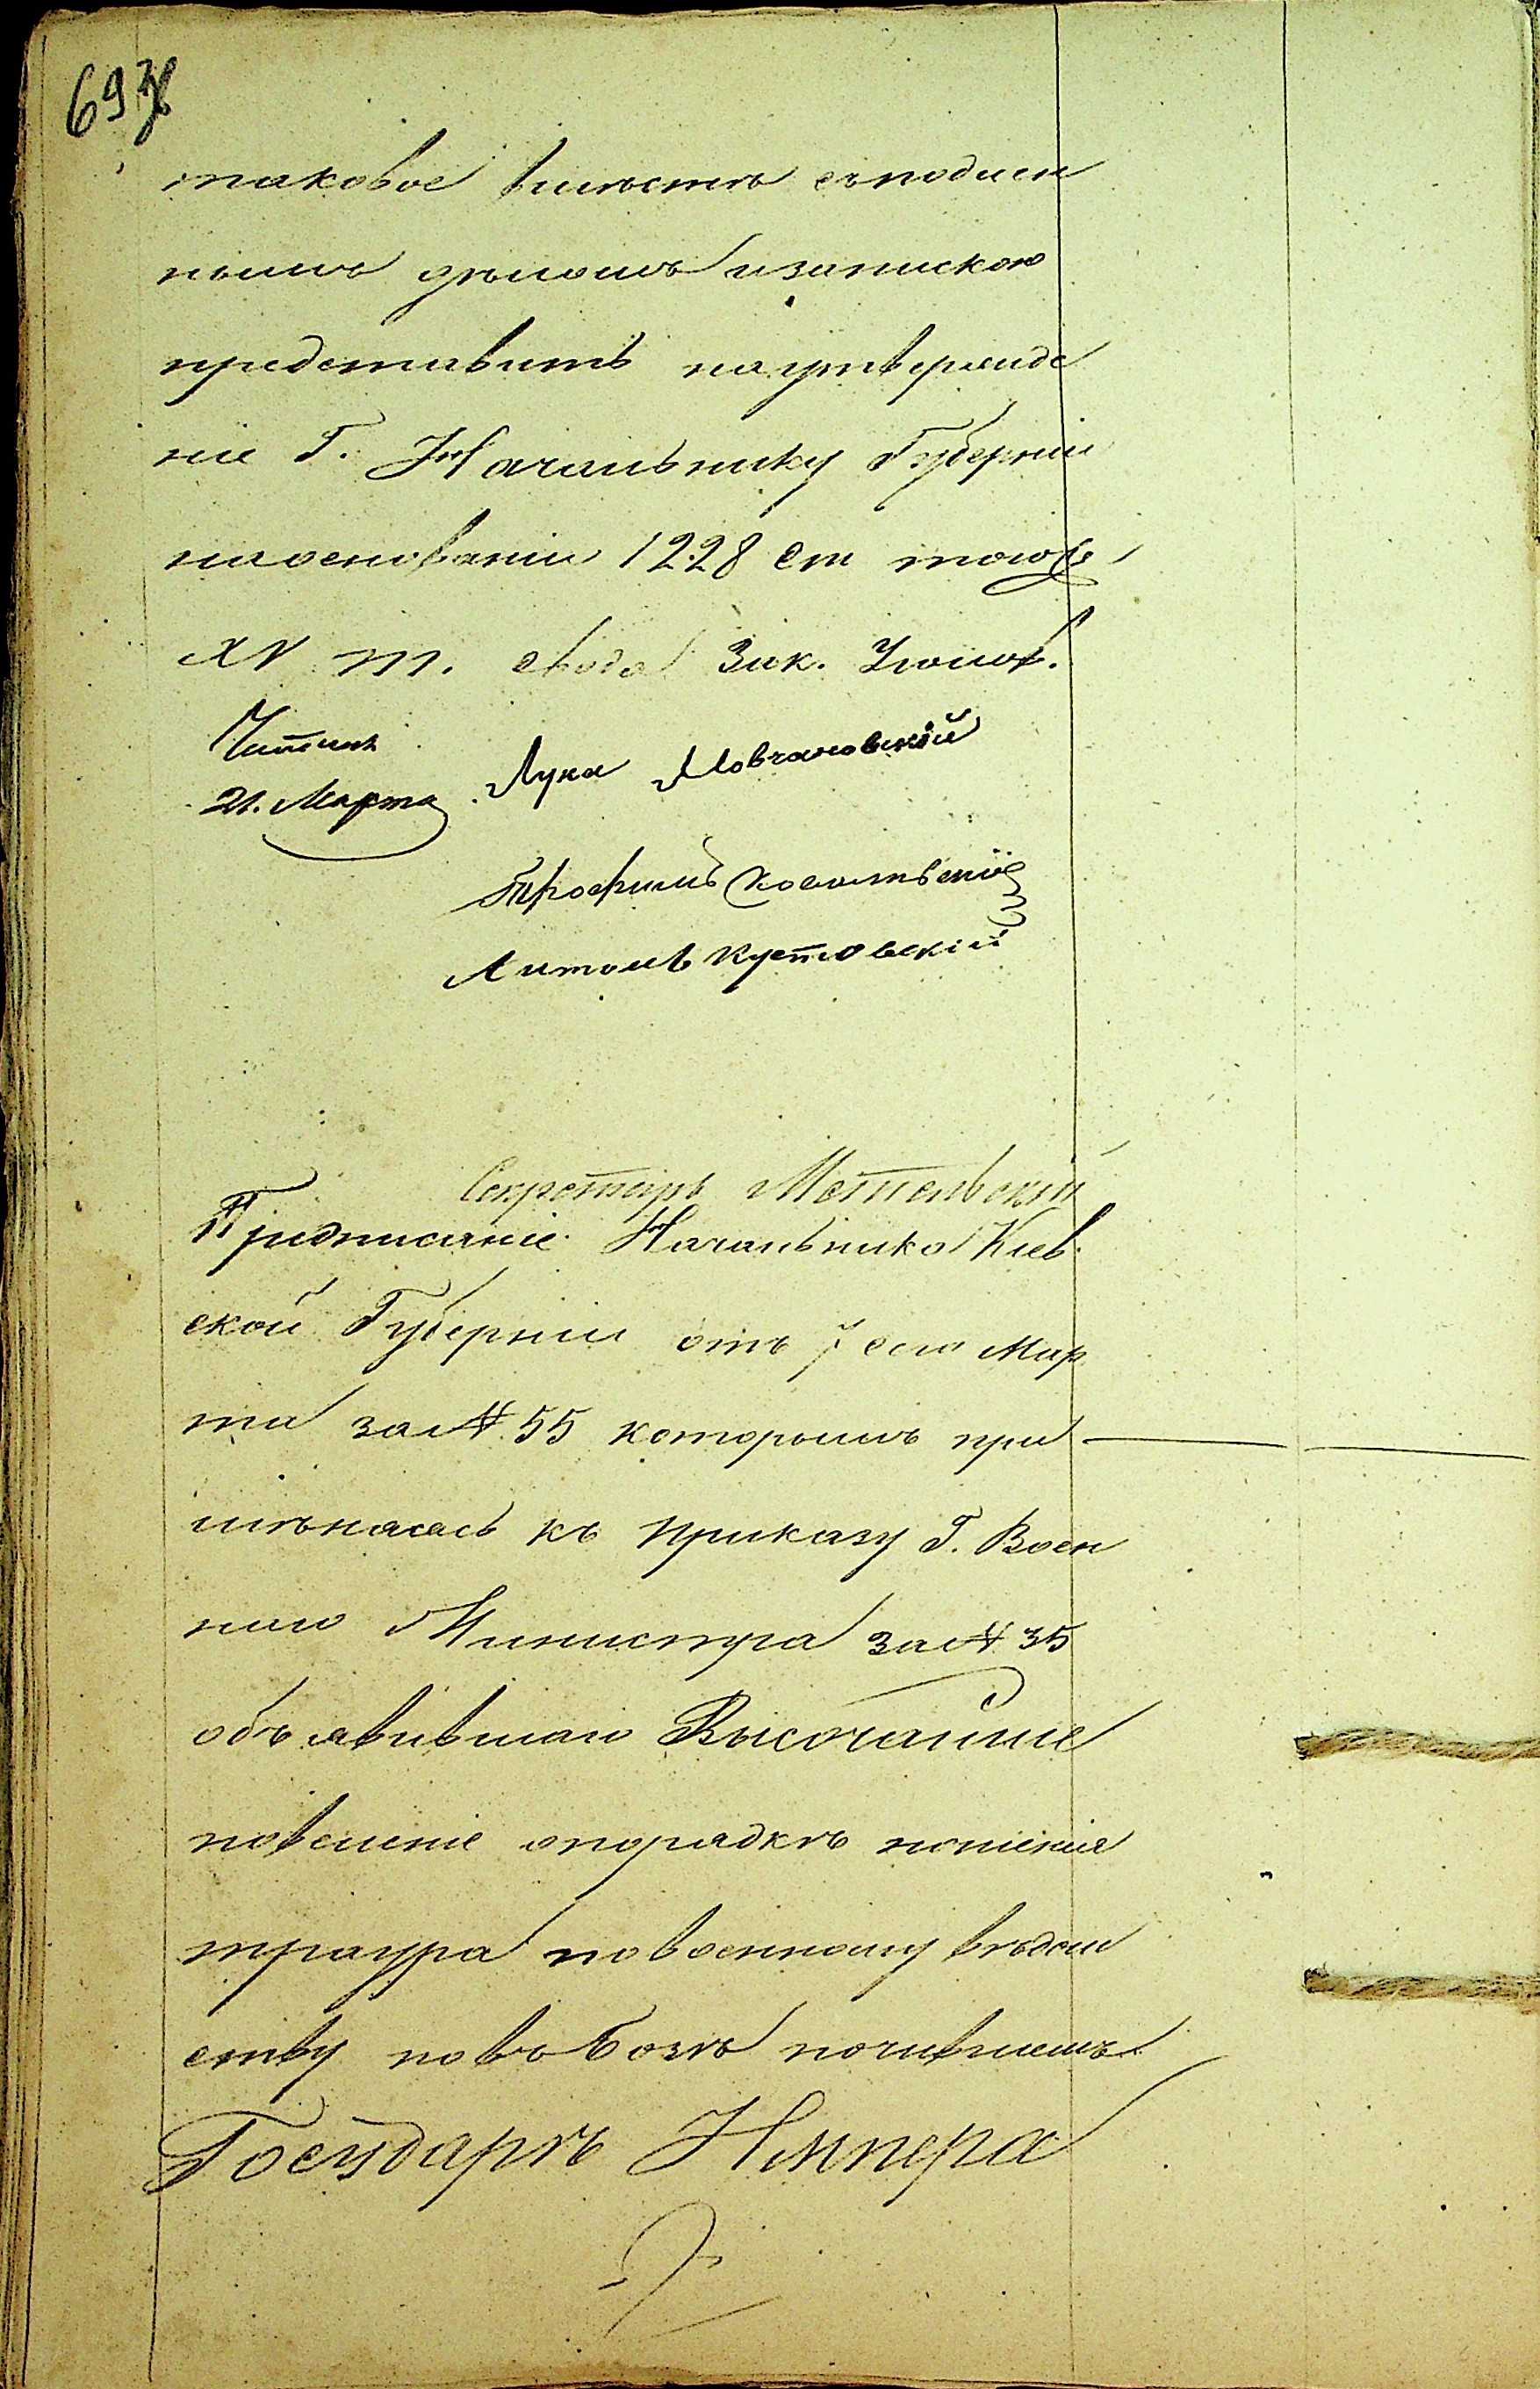 693
таковое вмѣстѣ съ подлин
нымъ дѣломъ и запискою
представить на утвержде
ніе Г. Начальнику Губерніи
на основаніи 1228 ст тогоже
XV т. свода Зак. Уголов.
Читалъ
21. Марта
Лука Мовчановскій
Трофимъ Ковальскій
Антонъ Кустовскій
Секретарь Метельскій
Предписаніе Начальника Кіев
ской Губерніи отъ 7 сего Мар
та за № 55 которымъ при
мѣняясь къ приказу Г. Воен
наго Министра за № 35
объявившаго Высочайшее
повеленіе о порядкѣ ношенія
траура по военному вѣдом
ству по въ Бозѣ почившемъ
Государѣ Импера